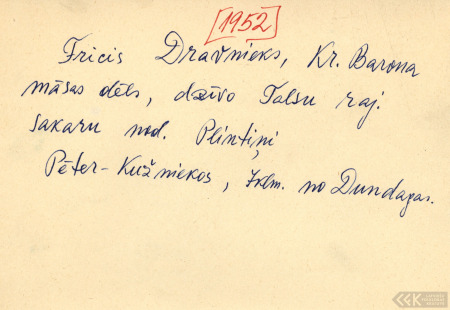 [1952]
Fricis Dravnieks, Kr. Barona
māsas dēls, dzīvo Talsu raj.
sakaru nod. Plintiņi
Pēter-Kužniekos, 7klm. no Dundagas.